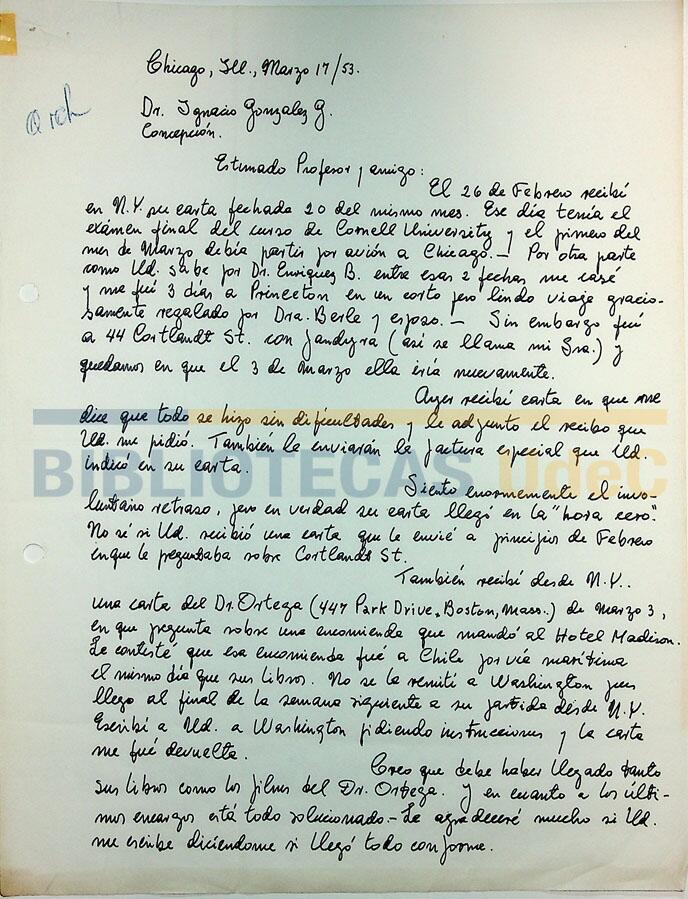 Chicago, Ill., Marzo 17/53.
Arch
Dr. Ignacio Gonzalez G.
Concepción.
Estimado Profesor y amigo:
El 26 de Febrero recibí
en N.Y. su carta fechada 20 del mismo mes. Ese día tenía el
exámen final del curso de Cornell University y el primero del
mes de Marzo debía partir por avión a Chicago.— Por otra parte
como Ud. sabe por Dr. Enriquez B. entre esas 2 fechas me casé
y me fuí 3 días a Princeton en un corto pero lindo viaje gracio-
samente regalado por Dra. Berle y esposo.— Sin embargo fuí
a 44 Cortlandt St. con Jandyra (así se llama mi Sra.) y
quedamos en que el 3 de Marzo ella iría nuevamente.
Ayer recibí carta en que me
dice que todo se hizo sin dificultades y le adjunto el recibo que
Ud. me pidió. También le enviarán la factura especial que Ud.
indicó en su carta.
BIBLIOTECAS UdeC
Siento enormemente el invo-
luntario retraso, pero en verdad su carta llegó en la "hora cero".
No sé si Ud. recibió una carta que le envié a principios de Febrero
en que le preguntaba sobre Cortlandt St.
También recibí desde N.Y.
una carta del Dr. Ortega (447 Park Drive, Boston, Mass.) de Marzo 3,
en que pregunta sobre una encomienda que mandó al Hotel Madison.
Le contesté que esa encomienda fué a Chile por vía marítima
el mismo día que sus libros. No se la remití a Washington pues
llego al final de la semana siguiente a su partida desde N.Y.
Escribí a Ud. a Washington pidiendo instrucciones y la carta
me fué devuelta.
Creo que debe haber llegado tanto
sus libros como los films del Dr. Ortega. Y en cuanto a los últi-
mos encargos está todo solucionado.— Le agradeceré mucho si Ud.
me escribe diciendome si llegó todo conforme.